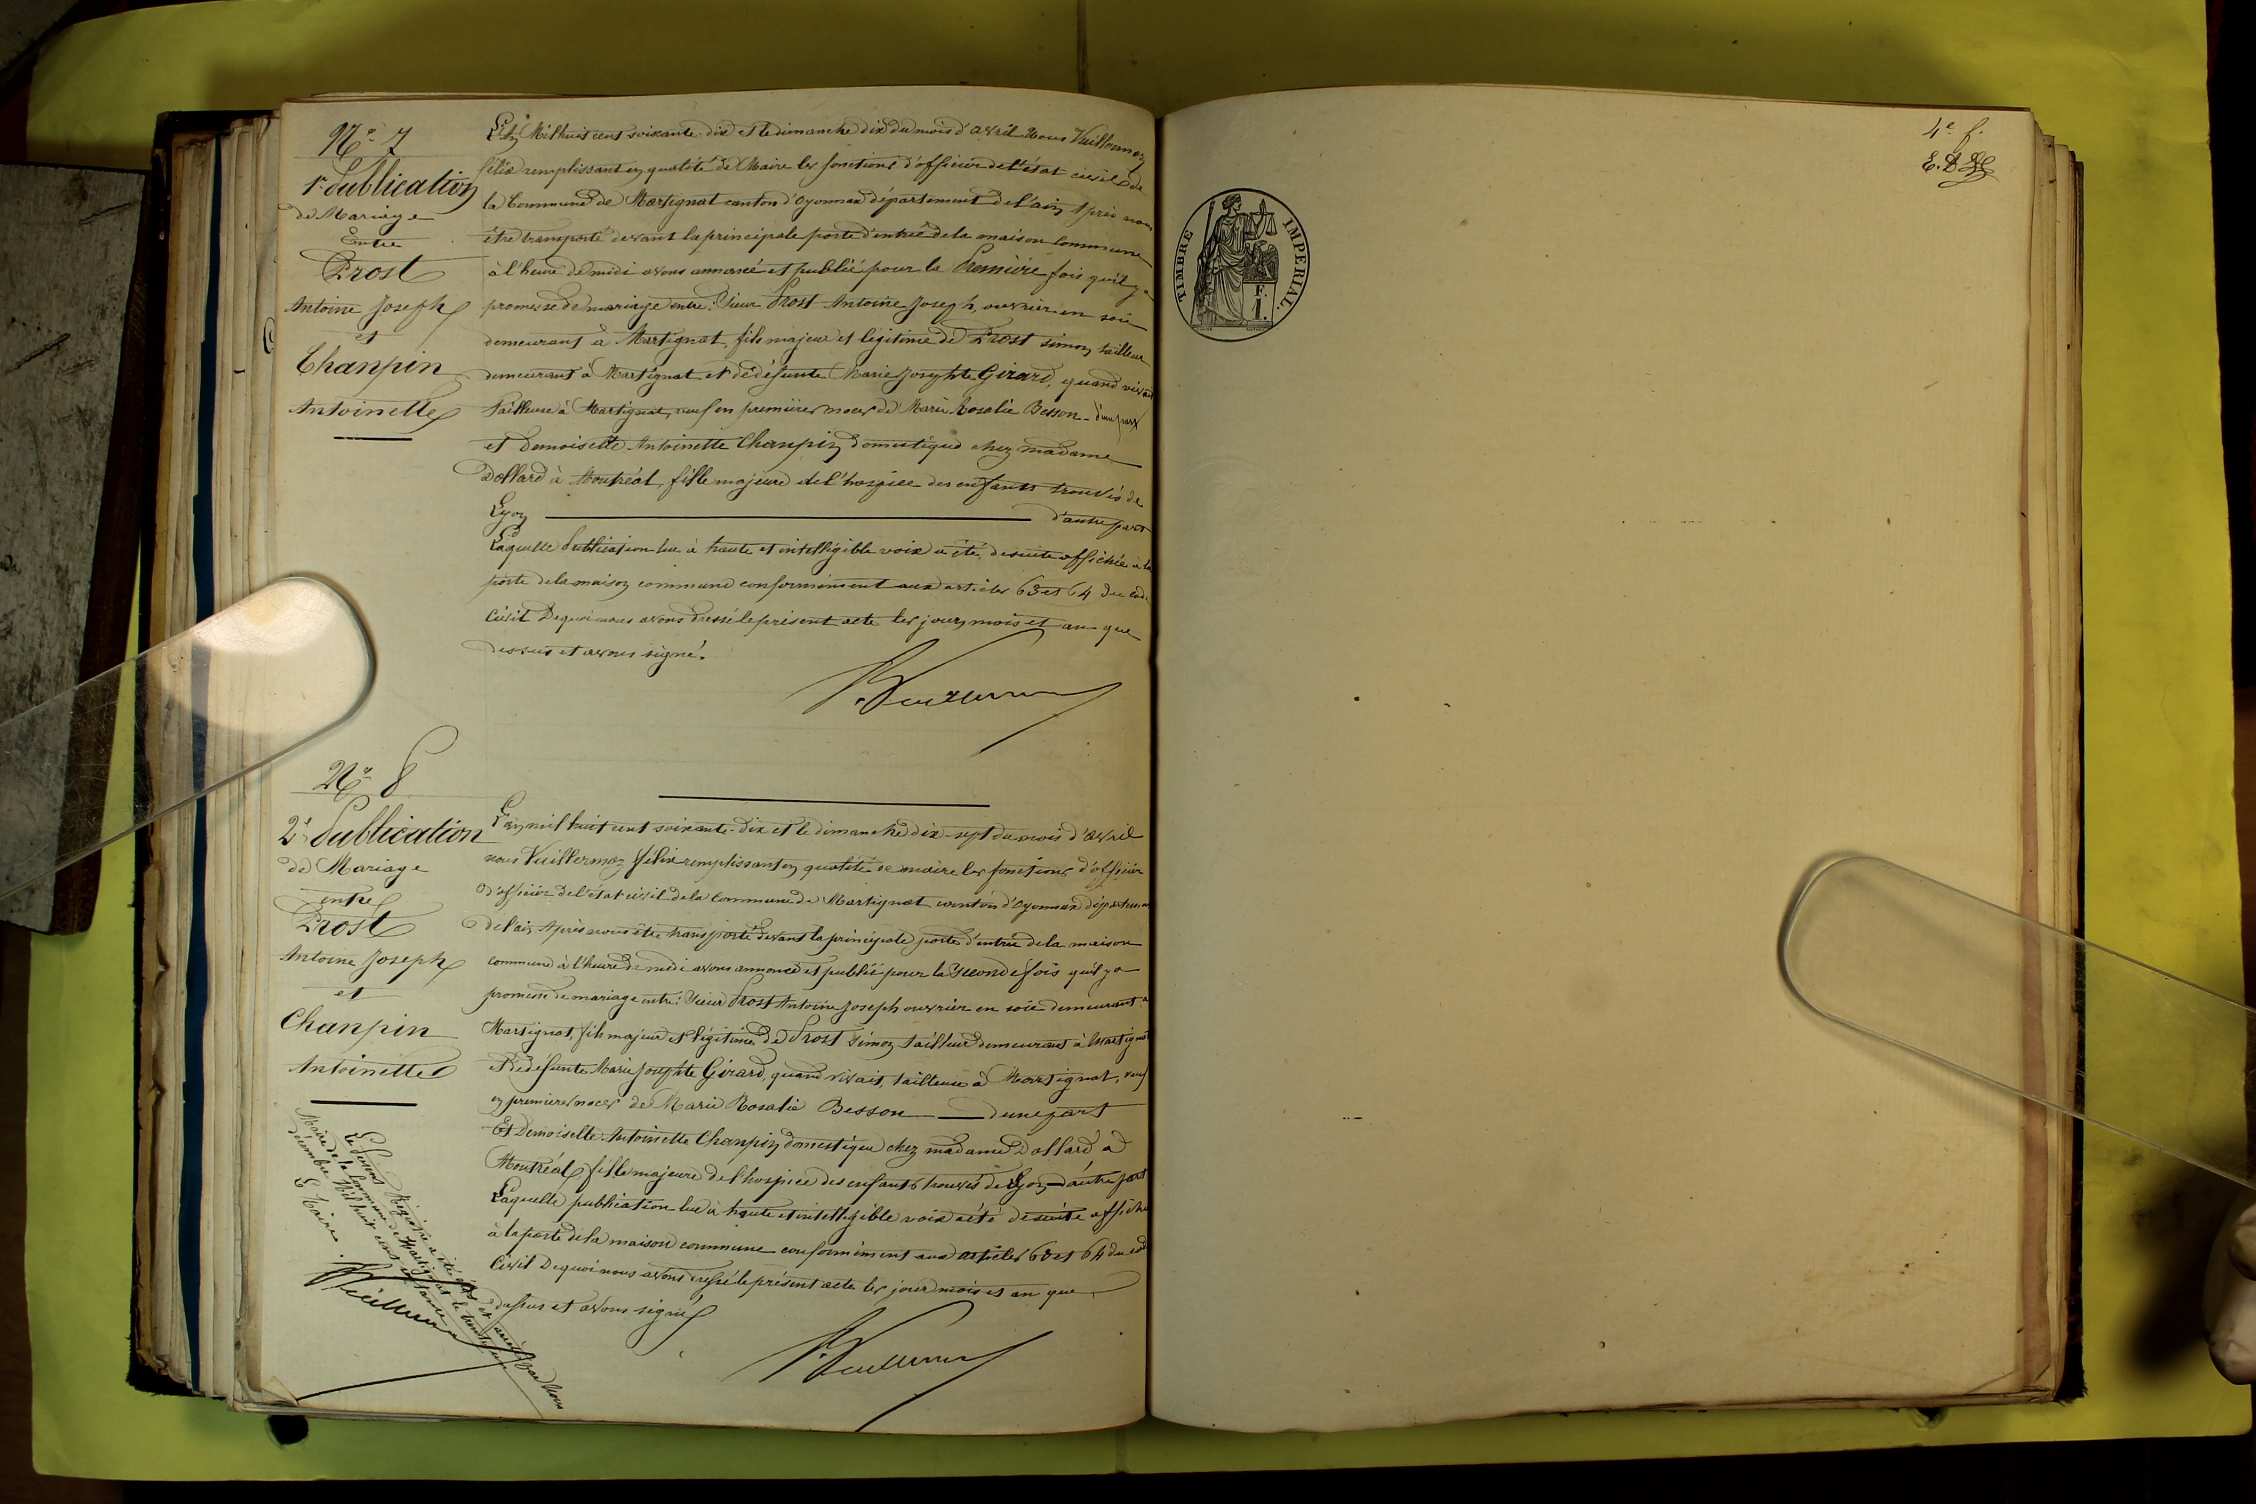 N.º 7
1.e Publication
de Mariage
Entre
Prost
Antoine Joseph
et
Chanpin
Antoinette
L'an Mil huit cent soixante-dix et le dimanche dix du mois d'avril Nous Vuillermoz
félix remplissant en qualité de Maire les fonctions d'officier de l'état civil de
la Commune de Martignat canton d'oyonnax département de l'ain Après nous
être transporté devant la principale porte d'entrée de la maison Commune
à l'heure de midi avons annoncé et publié pour la Première fois qu'il y a
promesse de mariage entre: Sieur Prost Antoine Joseph, ouvrier en soie
demeurant à Martignat, fils majeur et légitime de Prost Simon tailleur
demeurant à Martignat et de défunte Marie Josephte Girard, quand vivait
Tailleuse à Martignat, veuf en premières noces de Marie Rosalie Besson - d'une part
et Demoiselle Antoinette Chanpin domestique chez madame
Dollard à Montréal, fille majeure de l'hospice des enfants trouvés de
Lyon d'autre part
Laquelle Publication lue à haute et intelligible voix a été, de suite affichée à la
porte de la maison commune conformément aux articles 63 et 64 du code
Civil De quoi nous avons dressé le présent acte les jour, mois et an que
dessus et avons signé.
F. Vuillermoz
N.º 8
2.e Publication
de Mariage
entre
Prost
Antoine Joseph
et
Chanpin
Antoinette
L'an mil huit cent soixante-dix et le dimanche dix-sept du mois d'avril
nous Vuillermoz félix remplissant en qualité de maire les fonctions d'officier
d'officier de l'état civil de la Commune de Martignat canton d'Oyonnax départem
de l'ain Après nous être transporté devant la principale porte d'entrée de la maison
commune à l'heure de midi avons annoncé et publié pour la Seconde fois qu'il y a
promesse de mariage entre: Sieur Prost Antoine Joseph ouvrier en soie demeurant à
Martignat, fils majeur et légitime de Prost Simon tailleur demeurant à Martignat
et de défunte Marie Josephte Girard, quand vivait, tailleuse à Martignat, veuf
en premières noces de Marie Rosalie Besson d'une part
Et Demoiselle Antoinette Chanpin domestique chez madame Dollard à
Montréal, fille majeure de l'hospice des enfants trouvés de Lyon d'autre part
Laquelle publication lue à haute et intelligible voix a été de suite affichée
à la porte de la maison commune conformément aux articles 63 et 64 du code
Civil De quoi nous avons dressé le présent acte les jour mois et an que
dessus et avons signé
F. Vuillermoz
Le présent Registre a été clos et arrêté par Nous
Maire de la Commune de Martignat le trente un
décembre Mil huit cent soixante
Le Maire.
F. Vuillermoz
4e f.
E. D
TIMBRE IMPERIAL.
F.
1.